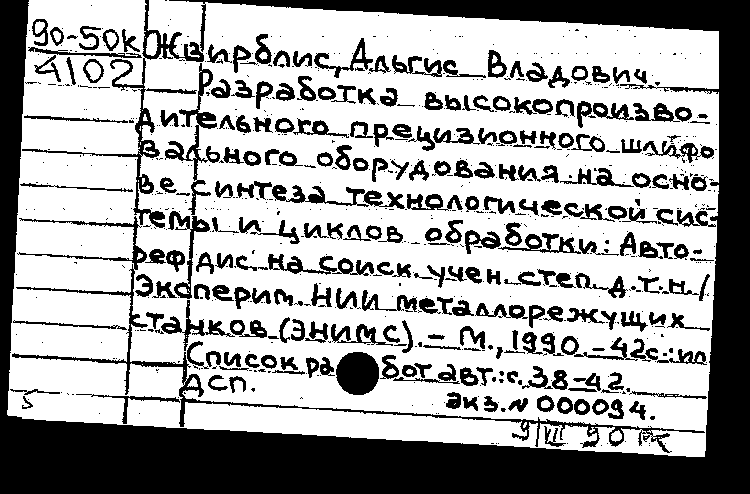 90-50к Жвирблис, Альгис Владович.
4102
Разработка высокопроизво-
дительного прецизионного шлифо
вального оборудования на осно-
ве синтеза технологической сис-
темы и циклов обработки: Авто-
реф. дис. на соиск. учен. степ. д.т.н./
Эксперим. НИИ металлорежущих
станков (ЭНИМС). – М., 1990. – 42с.: ил
Список работ авт.: с. 38-42.
ДСП.
экз. № 000094.
5
9/VII 90